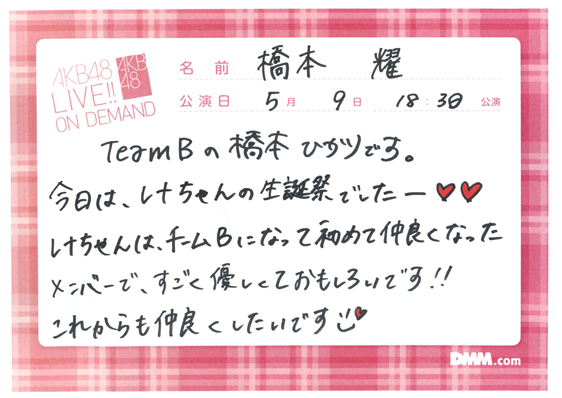 AKB48
LIVE!!
ON DEMAND
AKB
48
名前 橋本 耀
公演日 5月 9日 18:30 公演
Team Bの橋本ひかりです。
今日は、レナちゃんの生誕祭でしたー♥♥
レナちゃんは、チームBになって初めて仲良くなった
メンバーで、すごく優しくておもしろいです!!
これからも仲良くしたいです
DMM.com